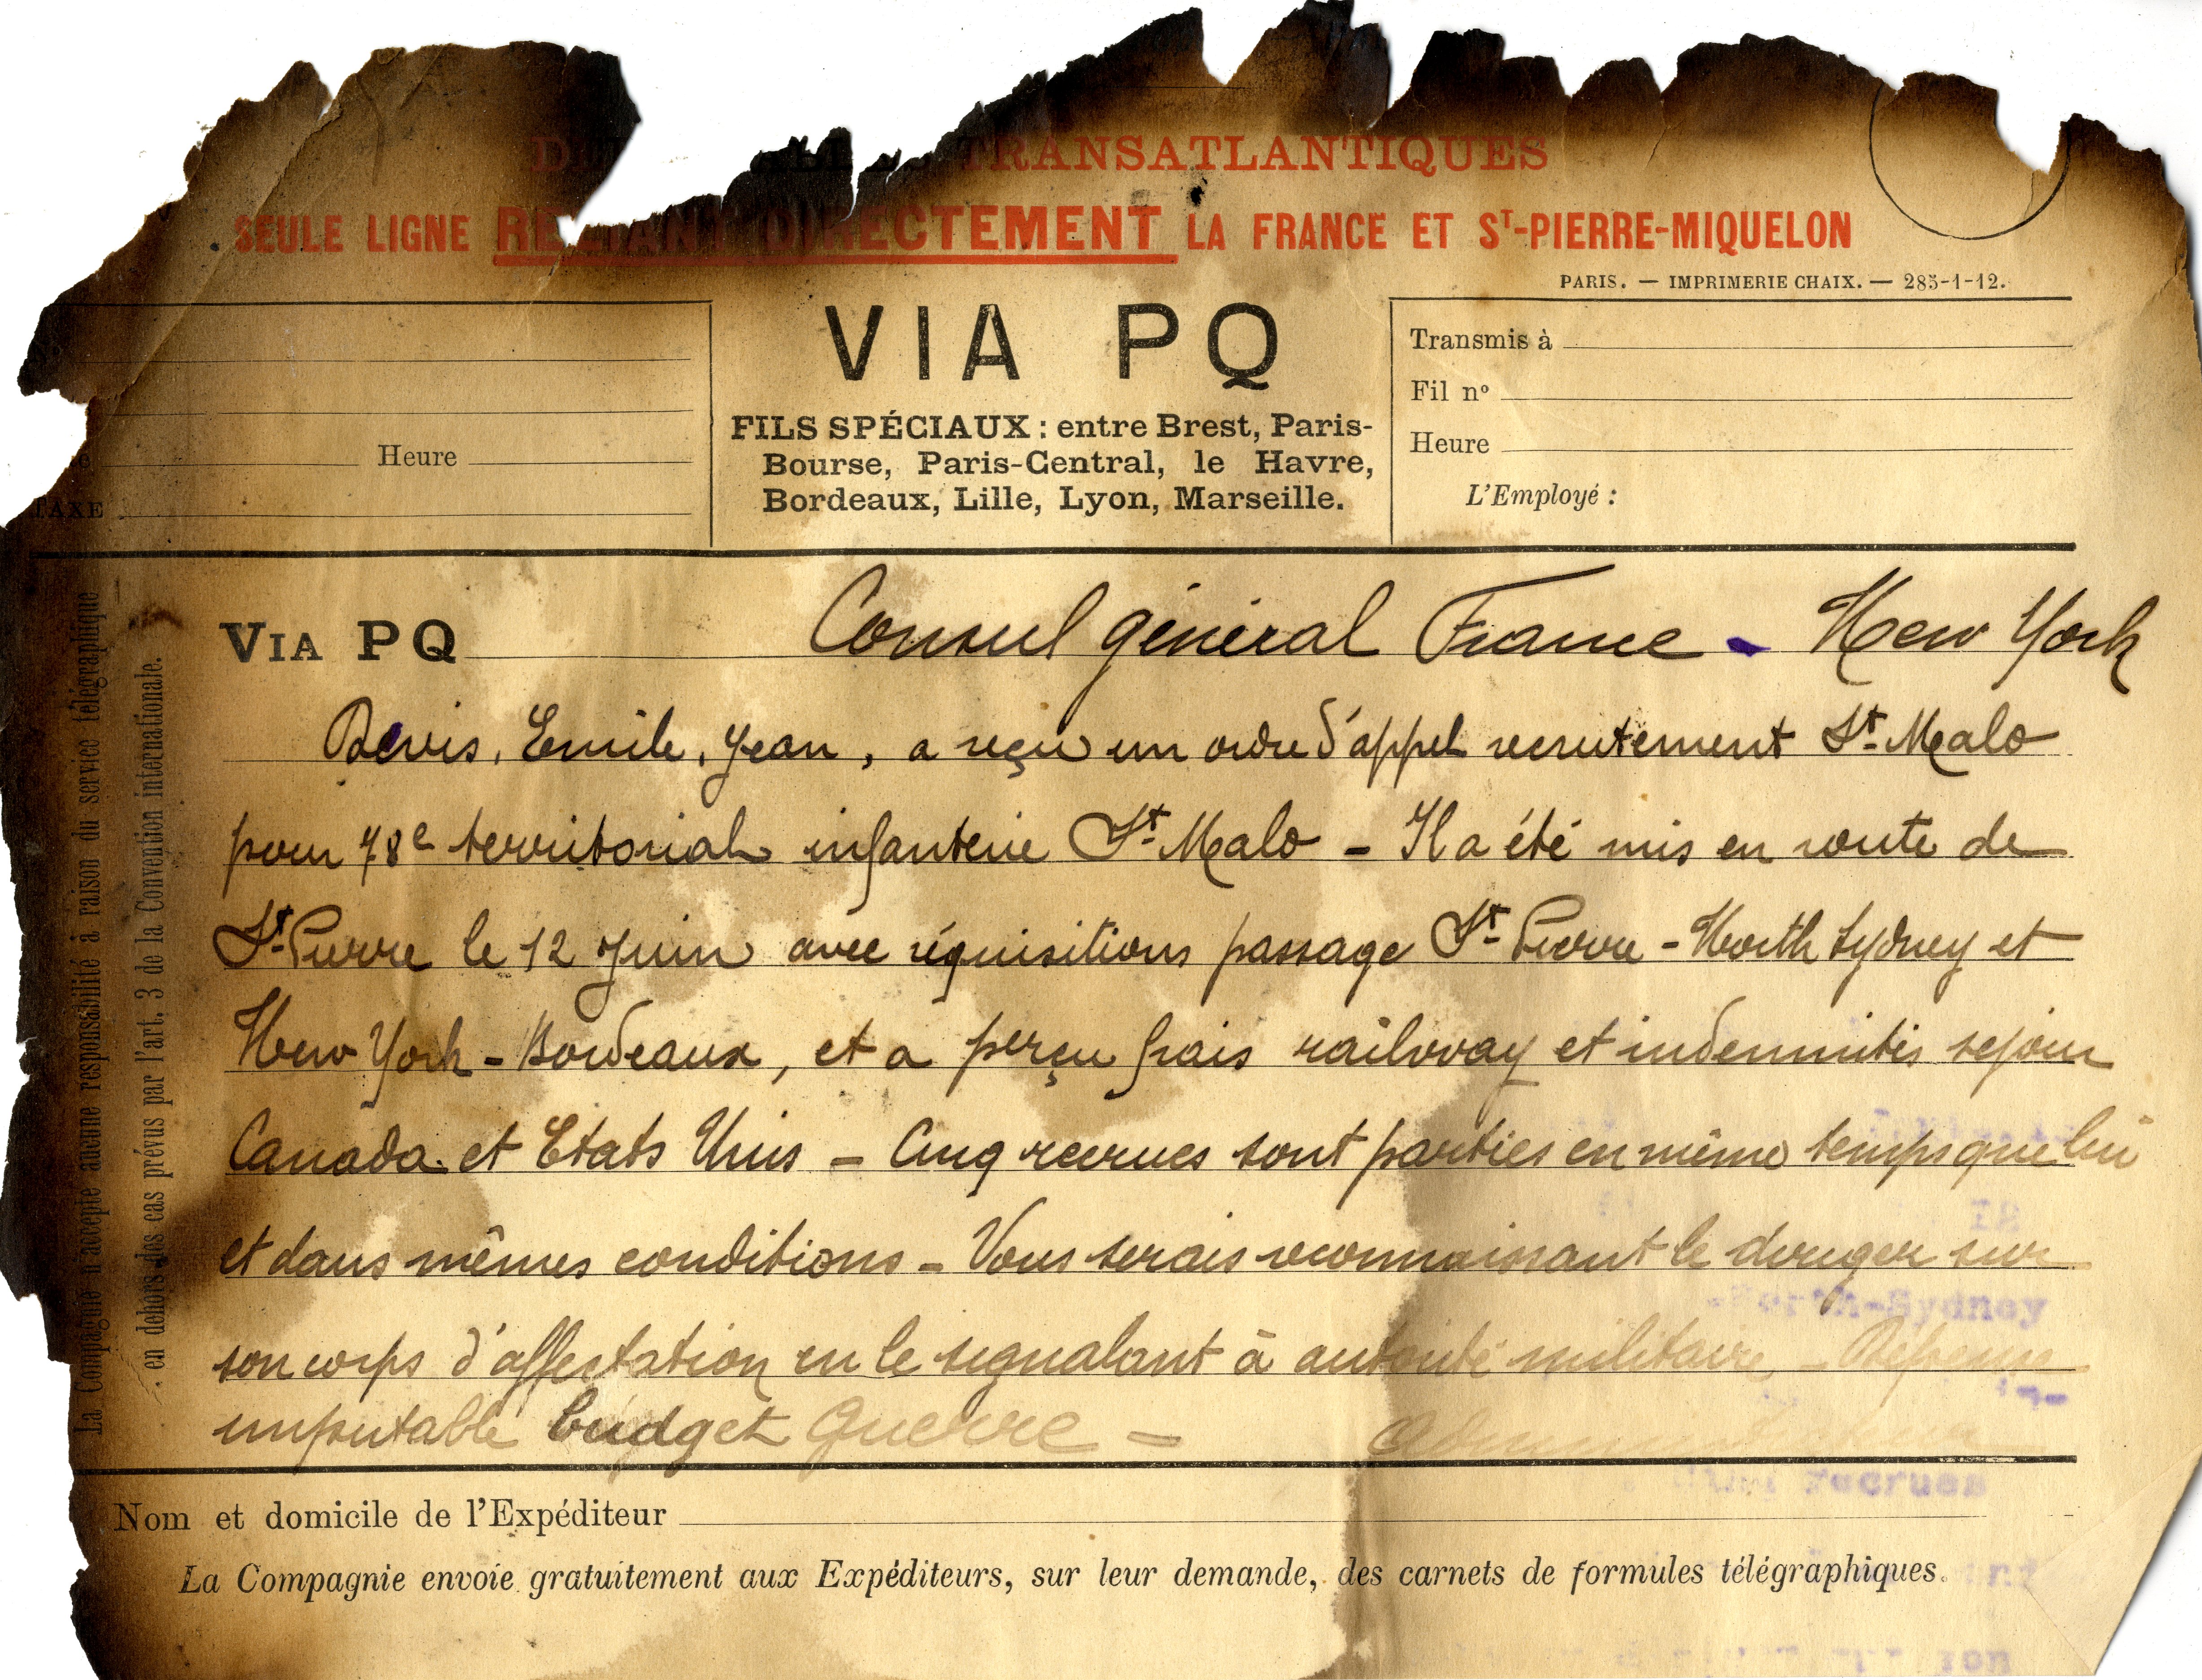 TRANSATLANTIQUES
SEULE LIGNE RELIANT DIRECTEMENT LA FRANCE ET Sᵀ-PIERRE-MIQUELON
PARIS. — IMPRIMERIE CHAIX. — 285-1-12.
VIA PQ
FILS SPÉCIAUX : entre Brest, Paris-
Bourse, Paris-Central, le Havre,
Bordeaux, Lille, Lyon, Marseille.
Heure
TAXE
Transmis à
Fil nº
Heure
L'Employé :
La Compagnie n'accepte aucune responsabilité à raison du service télégraphique
en dehors des cas prévus par l'art. 3 de la Convention internationale.
VIA PQ Consul général France - New York
Emile, Jean, a reçu un ordre d'appel recrutement St. Malo
pour 78e territorial infanterie St. Malo - Il a été mis en route de
St. Pierre le 12 Juin avec réquisitions passage St. Pierre - North Sydney et
New York - Bordeaux, et a perçu frais railway et indemnités sejour
Canada et Etats Unis - Cinq recrues sont parties en même temps que lui
et dans mêmes conditions - Vous serais reconnaissant le diriger sur
son corps d'affectation en le signalant à autorité militaire - Dépense
imputable budget Guerre - Administrateur
Nom et domicile de l'Expéditeur
La Compagnie envoie gratuitement aux Expéditeurs, sur leur demande, des carnets de formules télégraphiques.
North-Sydney
recrues